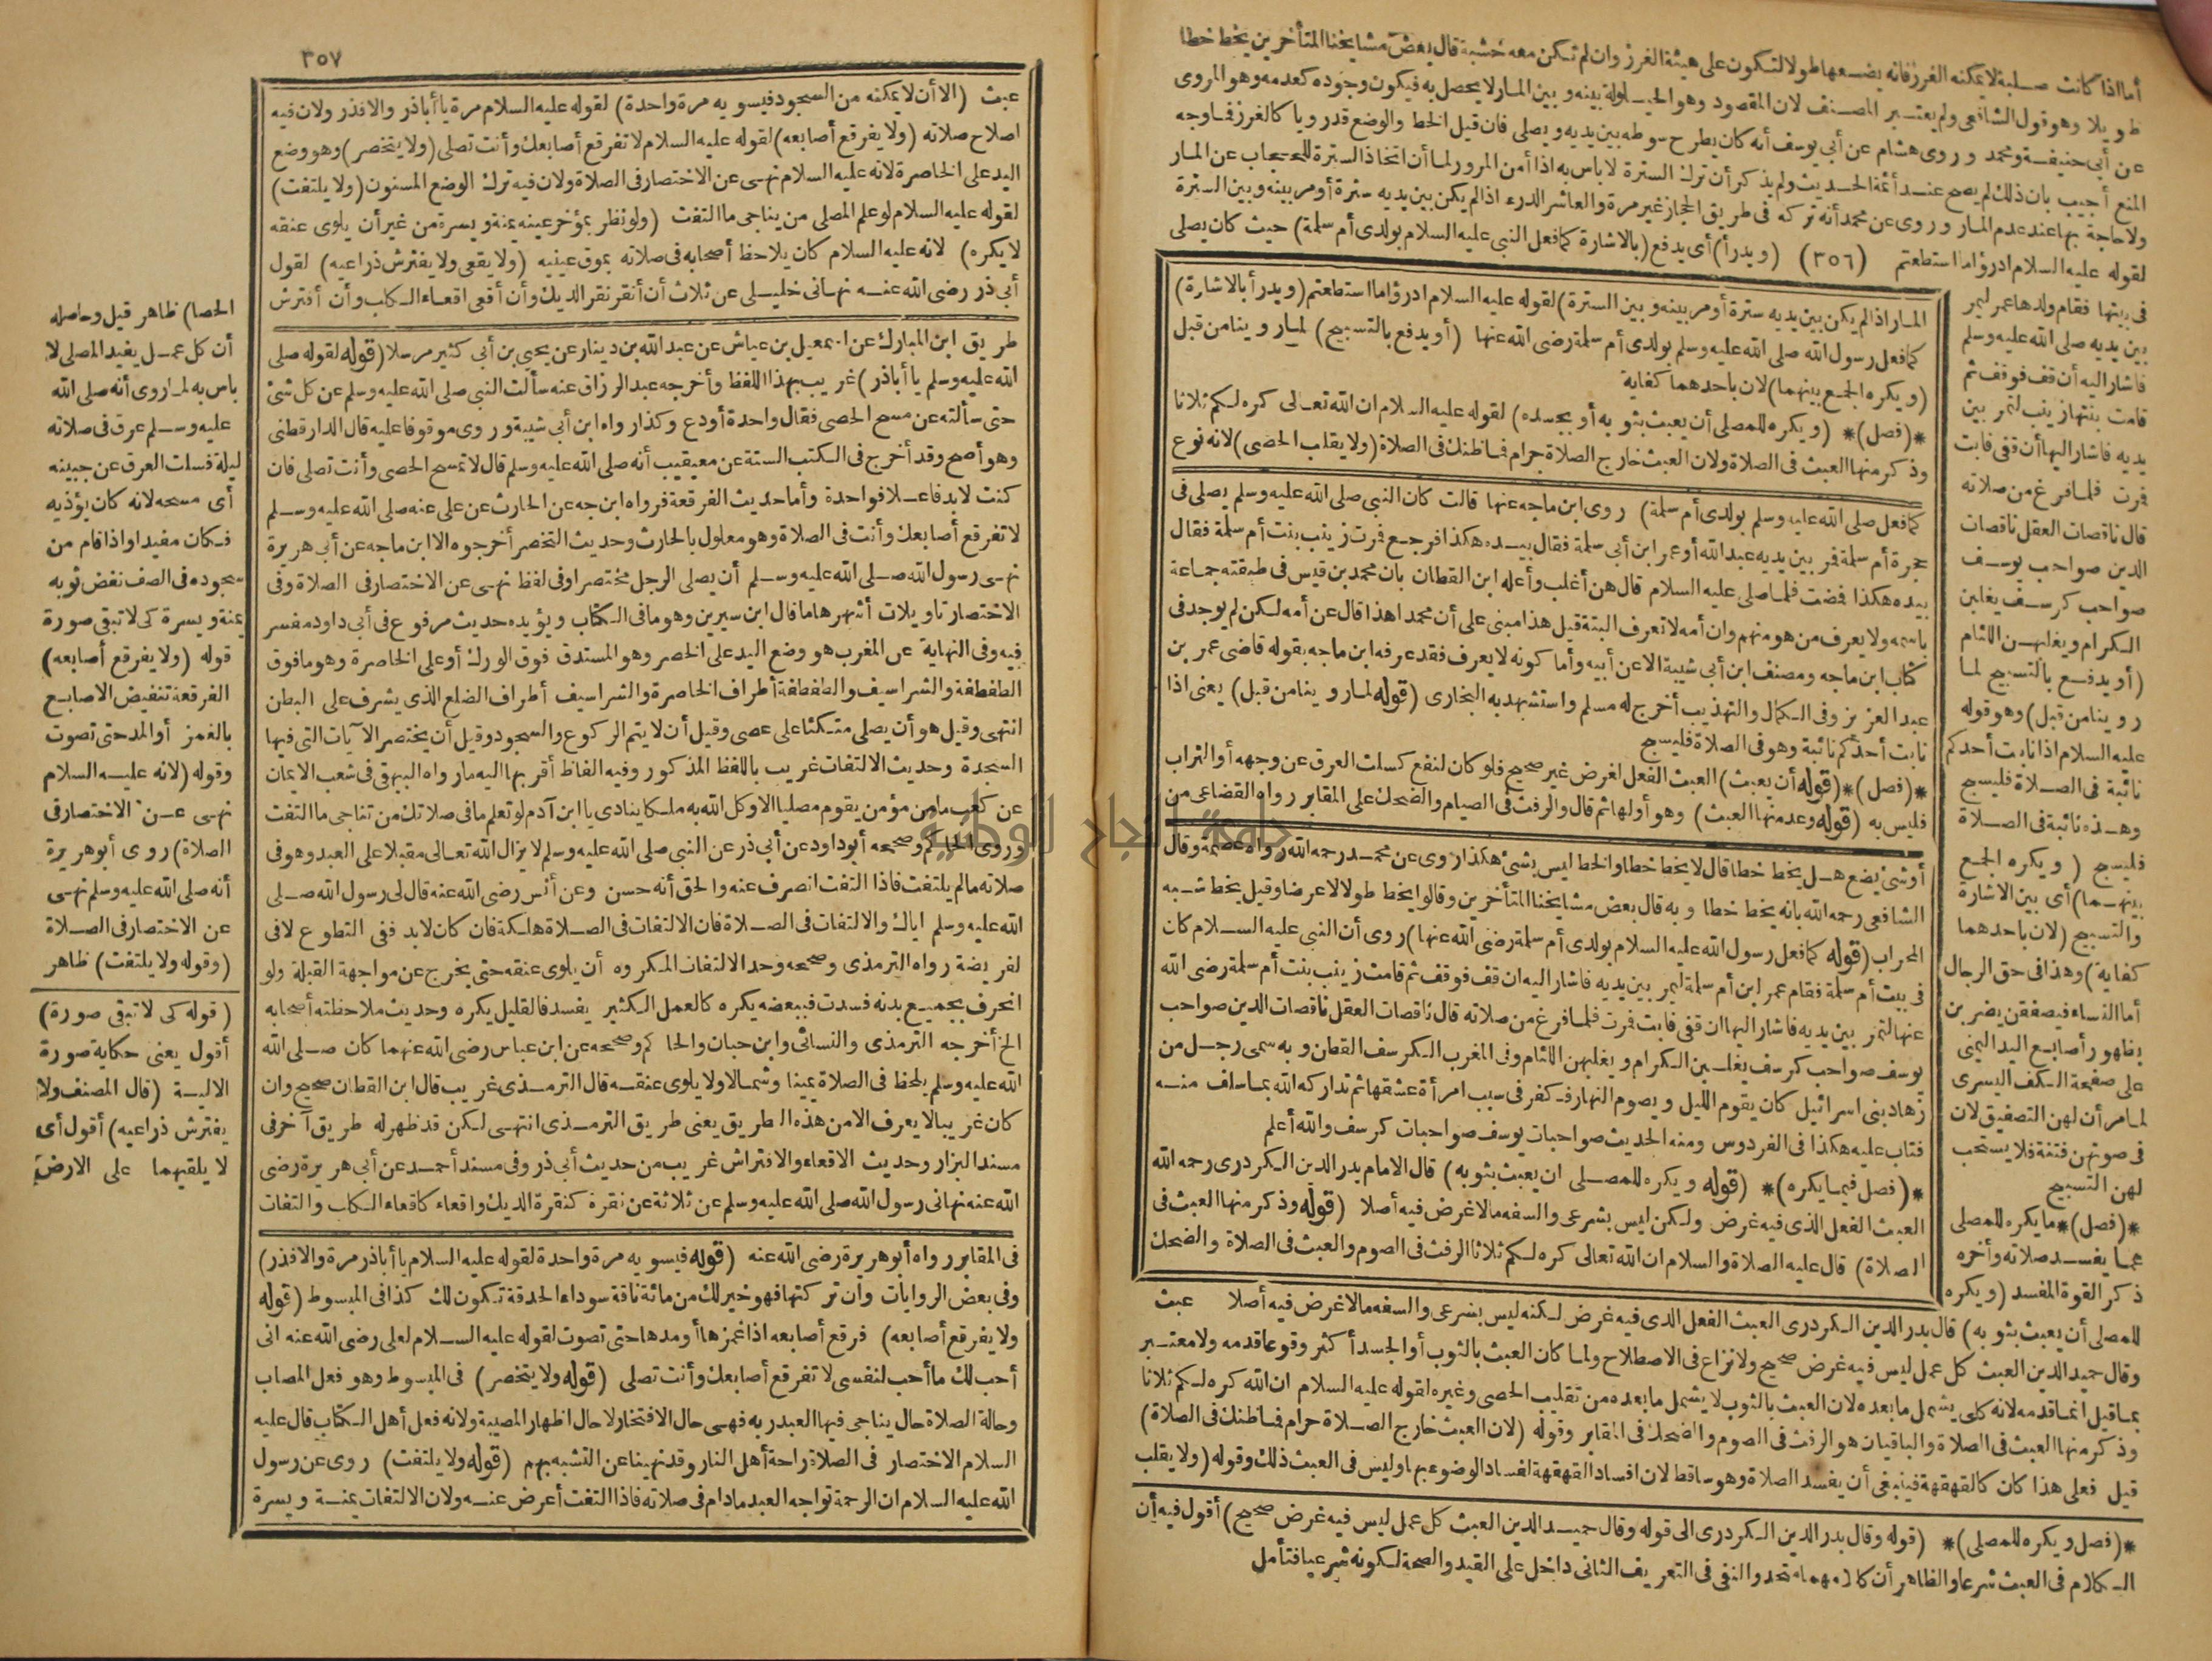 أما اذا كانت صلبة لا يمكنه الغرز فانه يضعها طولا لتكون على هيئة الغرز وان لم تكن معه خشبة قال بعض مشايخنا المتأخرين يخط خطا
طويلا وهو قول الشافعى ولم يعتبر المصنف لان المقصود وهو الحيلولة بينه وبين المار لا يحصل به فيكون وجوده كعدمه وهو المروى
عن أبى حنيفة ومحمد وروى هشام عن أبى يوسف أنه كان يطرح سوطه بين يديه ويصلى فان قيل الخط والوضع قد رويا كالغرز فما وجه
المنع أجيب بان ذلك لم يصح عند أئمة الحديث ولم يذكر أن ترك السترة لا باس به اذا أمن المرور لما أن اتخاذ السترة للحجاب عن المار
ولا حاجة بها عند عدم المار وروى عن محمد أنه تركه فى طريق الحجاز غير مرة والعاشر الدرء اذا لم يكن بين يديه سترة أو مر بينه وبين السترة
لقوله عليه السلام ادرؤا ما استطعتم (٣٥٦) (ويدرأ) أى يدفع (بالاشارة كما فعل النبى عليه السلام بولدى أم سلمة) حيث كان يصلى
فى بيتها فقام ولدها عمر ليمر
بين يديه صلى الله عليه وسلم
فاشار اليه أن قف فوقف ثم
قامت بنتها زينب لتمر بين
يديه فاشار اليها أن قفى فابت
فمرت فلما فرغ من صلاته
قال ناقصات العقل ناقصات
الدين صواحب يوسف
صواحب كرسف يغلبن
الكرام ويغلبهن اللئام
(أو يدفع بالتسبيح لما
روينا من قبل) وهو قوله
عليه السلام اذا نابت أحدكم
نائبة فى الصلاة فليسبح
وهذه نائبة فى الصلاة
فليسبح (ويكره الجمع
بينهما) أى بين الاشارة
والتسبيح (لان باحدهما
كفاية) وهذا فى حق الرجال
أما النساء فيصفقن يضربن
بظهور أصابع اليد اليمنى
على صفحة الكف اليسرى
لما مر أن لهن التصفيق لان
فى صوتهن فتنة فلا يستحب
لهن التسبيح
*(فصل)* ما يكره للمصلى
عما يفسد صلاته وأخره
ذكر القوة المفسد (ويكره
المار اذا لم يكن بين يديه سترة أو مر بينه وبين السترة) لقوله عليه السلام ادرؤا ما استطعتم (ويدرأ بالاشارة)
كما فعل رسول الله صلى الله عليه وسلم بولدى أم سلمة رضى الله عنها (أو يدفع بالتسبيح) لما روينا من قبل
(ويكره الجمع بينهما) لان باحدهما كفاية
*(فصل)* (ويكره للمصلى أن يعبث بثوبه أو بجسده) لقوله عليه السلام ان الله تعالى كره لكم ثلاثا
وذكر منها العبث فى الصلاة ولان العبث خارج الصلاة حرام فما ظنك فى الصلاة (ولا يقلب الحصى) لانه نوع
كما فعل صلى الله عليه وسلم بولدى أم سلمة) روى ابن ماجه عنها قالت كان النبى صلى الله عليه وسلم يصلى فى
حجرة أم سلمة فمر بين يديه عبد الله أو عمر ابن أبى سلمة فقال بيده هكذا فرجع فمرت زينب بنت أم سلمة فقال
بيده هكذا فمضت فلما صلى عليه السلام قال هن أغلب وأعله ابن القطان بان محمد بن قيس فى طبقته جماعة
باسمه ولا يعرف من هو منهم وان أمه لا تعرف البتة قيل هذا مبنى على أن محمدا هذا قال عن أمه لكن لم يوجد فى
كتاب ابن ماجه ومصنف ابن أبى شيبة الا عن أبيه وأما كونه لا يعرف فقد عرفه ابن ماجه بقوله قاضى عمر بن
عبد العزيز وفى الكمال والتهذيب أخرج له مسلم واستشهد به البخارى (قوله لما روينا من قبل) يعنى اذا
نابت أحدكم نائبة وهو فى الصلاة فليسبح
*(فصل)* (قوله أن يعبث) العبث الفعل لغرض غير صحيح فلو كان لنفع كسلت العرق عن وجهه أو التراب
فليس به (قوله وعد منها العبث) وهو أولها ثم قال والرفث فى الصيام والضحك على المقابر رواه القضاعى من
أو شئ يضع هل يخط خطا قال لا يخط خطا والخط ليس بشئ هكذا روى عن محمد رحمه الله رواه عصمة وقال
الشافعى رحمه الله بانه يخط خطا وبه قال بعض مشايخنا المتأخرين وقالوا يخط طولا لا عرضا وقيل يخط شبه
المحراب (قوله كما فعل رسول الله عليه السلام بولدى أم سلمة رضى الله عنها) روى أن النبى عليه السلام كان
فى بيت أم سلمة فقام عمر ابن أم سلمة ليمر بين يديه فاشار اليه ان قف فوقف ثم قامت زينب بنت أم سلمة رضى الله
عنها لتمر بين يديه فاشار اليها ان قفى فابت فمرت فلما فرغ من صلاته قال ناقصات العقل ناقصات الدين صواحب
يوسف صواحب كرسف يغلبن الكرام ويغلبهن اللئام وفى المغرب الكرسف القطن وبه سمى رجل من
زهاد بنى اسرائيل كان يقوم الليل ويصوم النهار فكفر فى سبب امرأة عشقها ثم تداركه الله بما سلف منه
فتاب عليه هكذا فى الفردوس ومنه الحديث صواحبات يوسف صواحبات كرسف والله أعلم
*(فصل فيما يكره)* (قوله ويكره للمصلى ان يعبث بثوبه) قال الامام بدر الدين الكردرى رحمه الله
العبث الفعل الذى فيه غرض ولكن ليس بشرعى والسفه ما لا غرض فيه أصلا (قوله وذكر منها العبث فى
الصلاة) قال عليه الصلاة والسلام ان الله تعالى كره لكم ثلاثا الرفث فى الصوم والعبث فى الصلاة والضحك
للمصلى أن يعبث بثوبه) قال بدر الدين الكردرى العبث الفعل الذى فيه غرض لكنه ليس بشرعى والسفه ما لا غرض فيه أصلا عبث
وقال حميد الدين العبث كل عمل ليس فيه غرض صحيح ولا نزاع فى الاصطلاح ولما كان العبث بالثوب أو الجسد أكثر وقوعا قدمه ولا معتبر
بما قيل انما قدمه لانه كلى يشمل ما بعده لان العبث بالثوب لا يشمل ما بعده من تقليب الحصى وغيره لقوله عليه السلام ان الله كره لكم ثلاثا
وذكر منها العبث فى الصلاة والباقيان هو الرفث فى الصوم والضحك فى المقابر وقوله (لان العبث خارج الصلاة حرام فما ظنك فى الصلاة)
قيل فعلى هذا كان كالقهقهة فينبغى أن يفسد الصلاة وهو ساقط لان افساد القهقهة لفساد الوضوء بها وليس فى العبث ذلك وقوله (ولا يقلب
*(فصل ويكره للمصلى)* (قوله وقال بدر الدين الكردرى الى قوله وقال حميد الدين العبث كل عمل ليس فيه غرض صحيح) أقول فيه أن
الكلام فى العبث شرعا والظاهر أن كلاهما متحد والنفى فى التعريف الثانى داخل على القيد والصحة لكونه شرعيا فتأمل
٣٥٧
عبث (الا أن لا يمكنه من السجود فيسويه مرة واحدة) لقوله عليه السلام مرة يا أباذر والا فذر ولان فيه
اصلاح صلاته (ولا يفرقع أصابعه) لقوله عليه السلام لا تفرقع أصابعك وأنت تصلى (ولا يتخصر) وهو وضع
اليد على الخاصرة لانه عليه السلام نهى عن الاختصار فى الصلاة ولان فيه ترك الوضع المسنون (ولا يلتفت)
لقوله عليه السلام لو علم المصلى من يناجى ما التفت (ولو نظر بمؤخر عينه يمنة ويسرة من غير أن يلوى عنقه
لا يكره) لانه عليه السلام كان يلاحظ أصحابه فى صلاته بموق عينيه (ولا يقعى ولا يفترش ذراعيه) لقول
أبى ذر رضى الله عنه نهانى خليلى عن ثلاث أن أنقر نقر الديك وأن أقعى اقعاء الكلب وأن أفترش
طريق ابن المبارك عن اسمعيل بن عياش عن عبد الله بن دينار عن يحيى بن أبى كثير مرسلا (قوله لقوله صلى
الله عليه وسلم يا أباذر) غريب بهذا اللفظ وأخرجه عبد الرزاق عنه سألت النبى صلى الله عليه وسلم عن كل شئ
حتى سألته عن مسح الحصى فقال واحدة أودع وكذا رواه ابن أبى شيبة وروى موقوفا عليه قال الدارقطنى
وهو أصح وقد أخرج فى الكتب الستة عن معيقيب أنه صلى الله عليه وسلم قال لا تمسح الحصى وأنت تصلى فان
كنت لا بد فاعلا فواحدة وأما حديث الفرقعة فرواه ابن جه عن الحارث عن على عنه صلى الله عليه وسلم
لا تفرقع أصابعك وأنت فى الصلاة وهو معلول بالحارث وحديث التخصر أخرجوه الا ابن ماجه عن أبى هريرة
نهى رسول الله صلى الله عليه وسلم أن يصلى الرجل مختصرا وفى لفظ نهى عن الاختصار فى الصلاة وفى
الاختصار تاويلات أشهرها ما قال ابن سيرين وهو ما فى الكتاب ويؤيده حديث مرفوع فى أبى داود مفسر
فيه وفى النهاية عن المغرب هو وضع اليد على الخصر وهو المستدق فوق الورك أو على الخاصرة وهو ما فوق
الطفطفة والشراسيف والطفطفة أطراف الخاصرة والشراسيف أطراف الضلع الذى يشرف على البطن
انتهى وقيل هو أن يصلى متكئا على عصى وقيل أن لا يتم الركوع والسجود وقيل أن يختصر الآيات التى فيها
السجدة وحديث الالتفات غريب باللفظ المذكور وفيه الفاظ أقربها اليه مارواه البيهقى فى شعب الايمان
عن كعب ما من مؤمن يقوم مصليا الا وكل الله به ملكا ينادى يا ابن آدم لو تعلم ما فى صلاتك من تناجى ما التفت
وروى الحاكم وصححه أبوداود عن أبى ذر عن النبى صلى الله عليه وسلم لا يزال الله تعالى مقبلا على العبد وهو فى
صلاته ما لم يلتفت فاذا التفت انصرف عنه والحق أنه حسن وعن أنس رضى الله عنه قال لى رسول الله صلى
الله عليه وسلم اياك والالتفات فى الصلاة فان الالتفات فى الصلاة هلكة فان كان لا بد ففى التطوع لا فى
لفريضة رواه الترمذى وصححه وحد الالتفات المكروه أن يلوى عنقه حتى يخرج عن مواجهة القبلة ولو
انحرف بجميع بدنه فسدت فببعضه يكره كالعمل الكثير يفسد فالقليل يكره وحديث ملاحظته أصحابه
الخ أخرجه الترمذى والنسائى وابن حبان والحاكم وصححه عن ابن عباس رضى الله عنهما كان صلى الله
الله عليه وسلم يلحظ فى الصلاة يمينا وشمالا ولا يلوى عنقه قال الترمذى غريب قال ابن القطان صحيح وان
كان غريبا لا يعرف الا من هذه الطريق يعنى طريق الترمذى انتهى لكن قد ظهر له طريق آخر فى
مسند البزار وحديث الاقعاء والافتراش غريب من حديث أبى ذر وفى مسند أحمد عن أبى هريرة رضى
الله عنه نهانى رسول الله صلى الله عليه وسلم عن ثلاثة عن نقرة كنقرة الديك واقعاء كاقعاء الكلب والتفات
فى المقابر رواه أبو هريرة رضى الله عنه (قوله فيسويه مرة واحدة لقوله عليه السلام يا أباذر مرة والا فذر)
وفى بعض الروايات وان تركتها فهو خير لك من مائة ناقة سوداء الحدقة تكون لك كذا فى المبسوط (قوله
ولا يفرقع أصابعه) فرقع أصابعه اذا غمزها أو مدها حتى تصوت لقوله عليه السلام لعلى رضى الله عنه انى
أحب لك ما أحب لنفسى لا تفرقع أصابعك وأنت تصلى (قوله ولا يتخصر) فى المبسوط وهو فعل المصاب
وحالة الصلاة حال يناجى فيها العبد ربه فهى حال الافتخار لا حال اظهار المصيبة ولانه فعل أهل الكتاب قال عليه
السلام الاختصار فى الصلاة راحة أهل النار وقد نهينا عن التشبه بهم (قوله ولا يلتفت) روى عن رسول
الله عليه السلام ان الرحمة تواجه العبد مادام فى صلاته فاذا التفت أعرض عنه ولان الالتفات يمنة ويسرة
الحصا) ظاهر قيل وحاصله
أن كل عمل يفيد المصلى لا
باس به لما روى أنه صلى الله
عليه وسلم عرق فى صلاته
ليلة فسلت العرق عن جبينه
أى مسحه لانه كان يؤذيه
فكان مفيدا واذا قام من
سجوده فى الصف نفض ثوبه
يمنة ويسرة كى لا تبقى صورة
قوله (ولا يفرقع أصابعه)
الفرقعة تنقيض الاصابع
بالغمز أو المد حتى تصوت
وقوله (لانه عليه السلام
نهى عن الاختصار فى
الصلاة) روى أبو هريرة
أنه صلى الله عليه وسلم نهى
عن الاختصار فى الصلاة
(وقوله ولا يلتفت) ظاهر
(قوله كى لا تبقى صورة)
أقول يعنى حكاية صورة
الالية (قال المصنف ولا
يفترش ذراعيه) أقول أى
لا يلقيهما على الارض
جامعة النجاح الوطنية